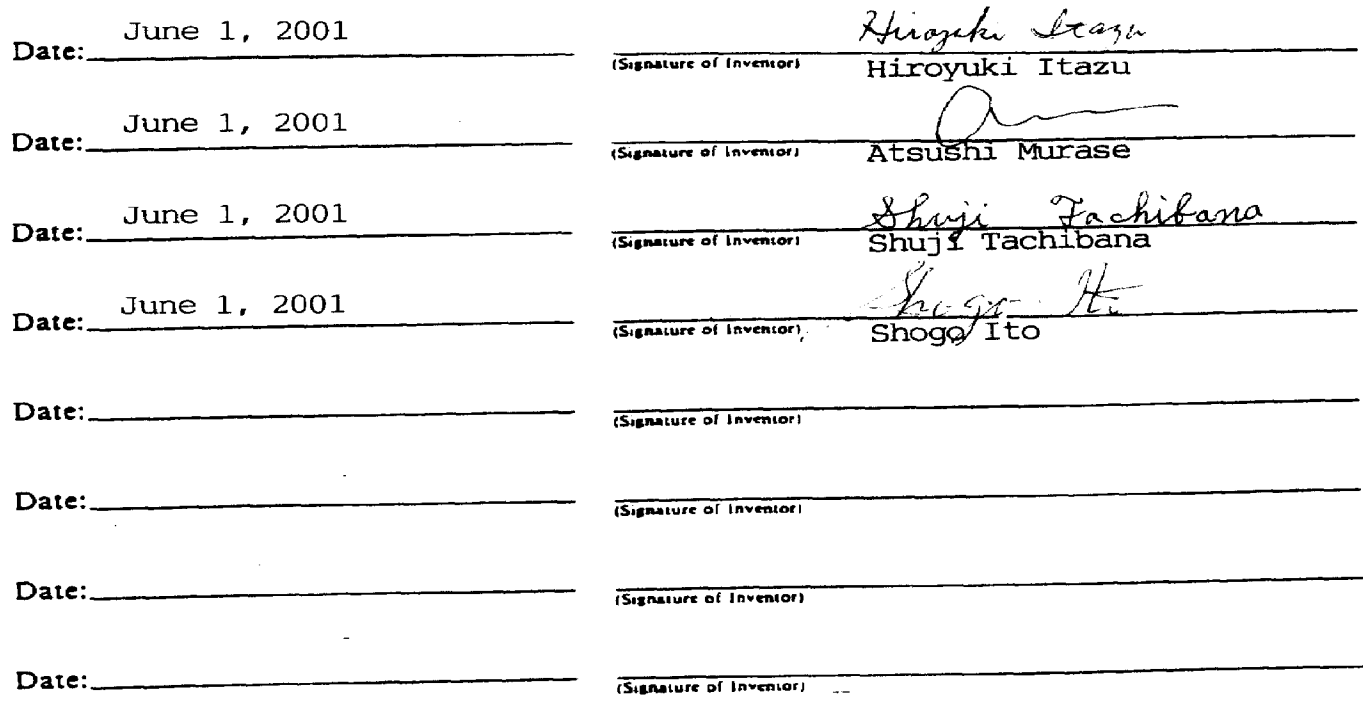 Date: June 1, 2001 Hiroyuki Itazu
(Signature of Inventor) Hiroyuki Itazu
Date: June 1, 2001
(Signature of Inventor) Atsushi Murase
Date: June 1, 2001 Shuji Tachibana
(Signature of Inventor) Shuji Tachibana
Date: June 1, 2001 Shogo Ito
(Signature of Inventor) Shogo Ito
Date:
(Signature of Inventor)
Date:
(Signature of Inventor)
Date:
(Signature of Inventor)
Date:
(Signature of Inventor)